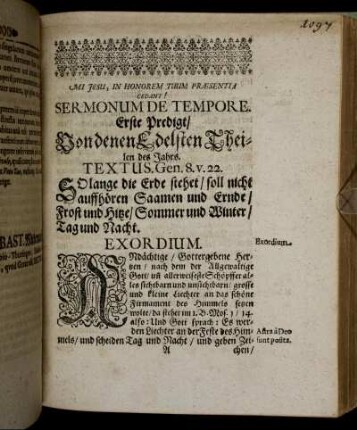 1097
MI JESU, IN HONOREM TUUM PRÆSENTIA
CEDANT!
SERMONUM DE TEMPORE.
Erste Predigt/
Von denen Edelsten Thei-
len des Jahrs.
TEXTUS. Gen. 8. v. 22.
SOlange die Erde stehet / soll nicht
auffhören Saamen und Ernde /
Frost und Hitze / Sommer und Winter /
Tag und Nacht.
EXORDIUM.
Exordium.
ANdächtige / Gottergebene Her-
tzen / nach dem der Allgewaltige
Gott uñ allerweiseste Schöpffer al-
les sichtbarn und unsichtbarn: grosse
und kleine Liechter an das schöne
Firmament des Himmels setzen
wolte / da stehet im 1. B. Mos. 1 / 14
also: Und Gott sprach: Es wer-
den Liechter an der Feste des Him-
mels / und scheiden Tag und Nacht / und geben Zei-
Astra à Deo
sunt posita.
A
chen /